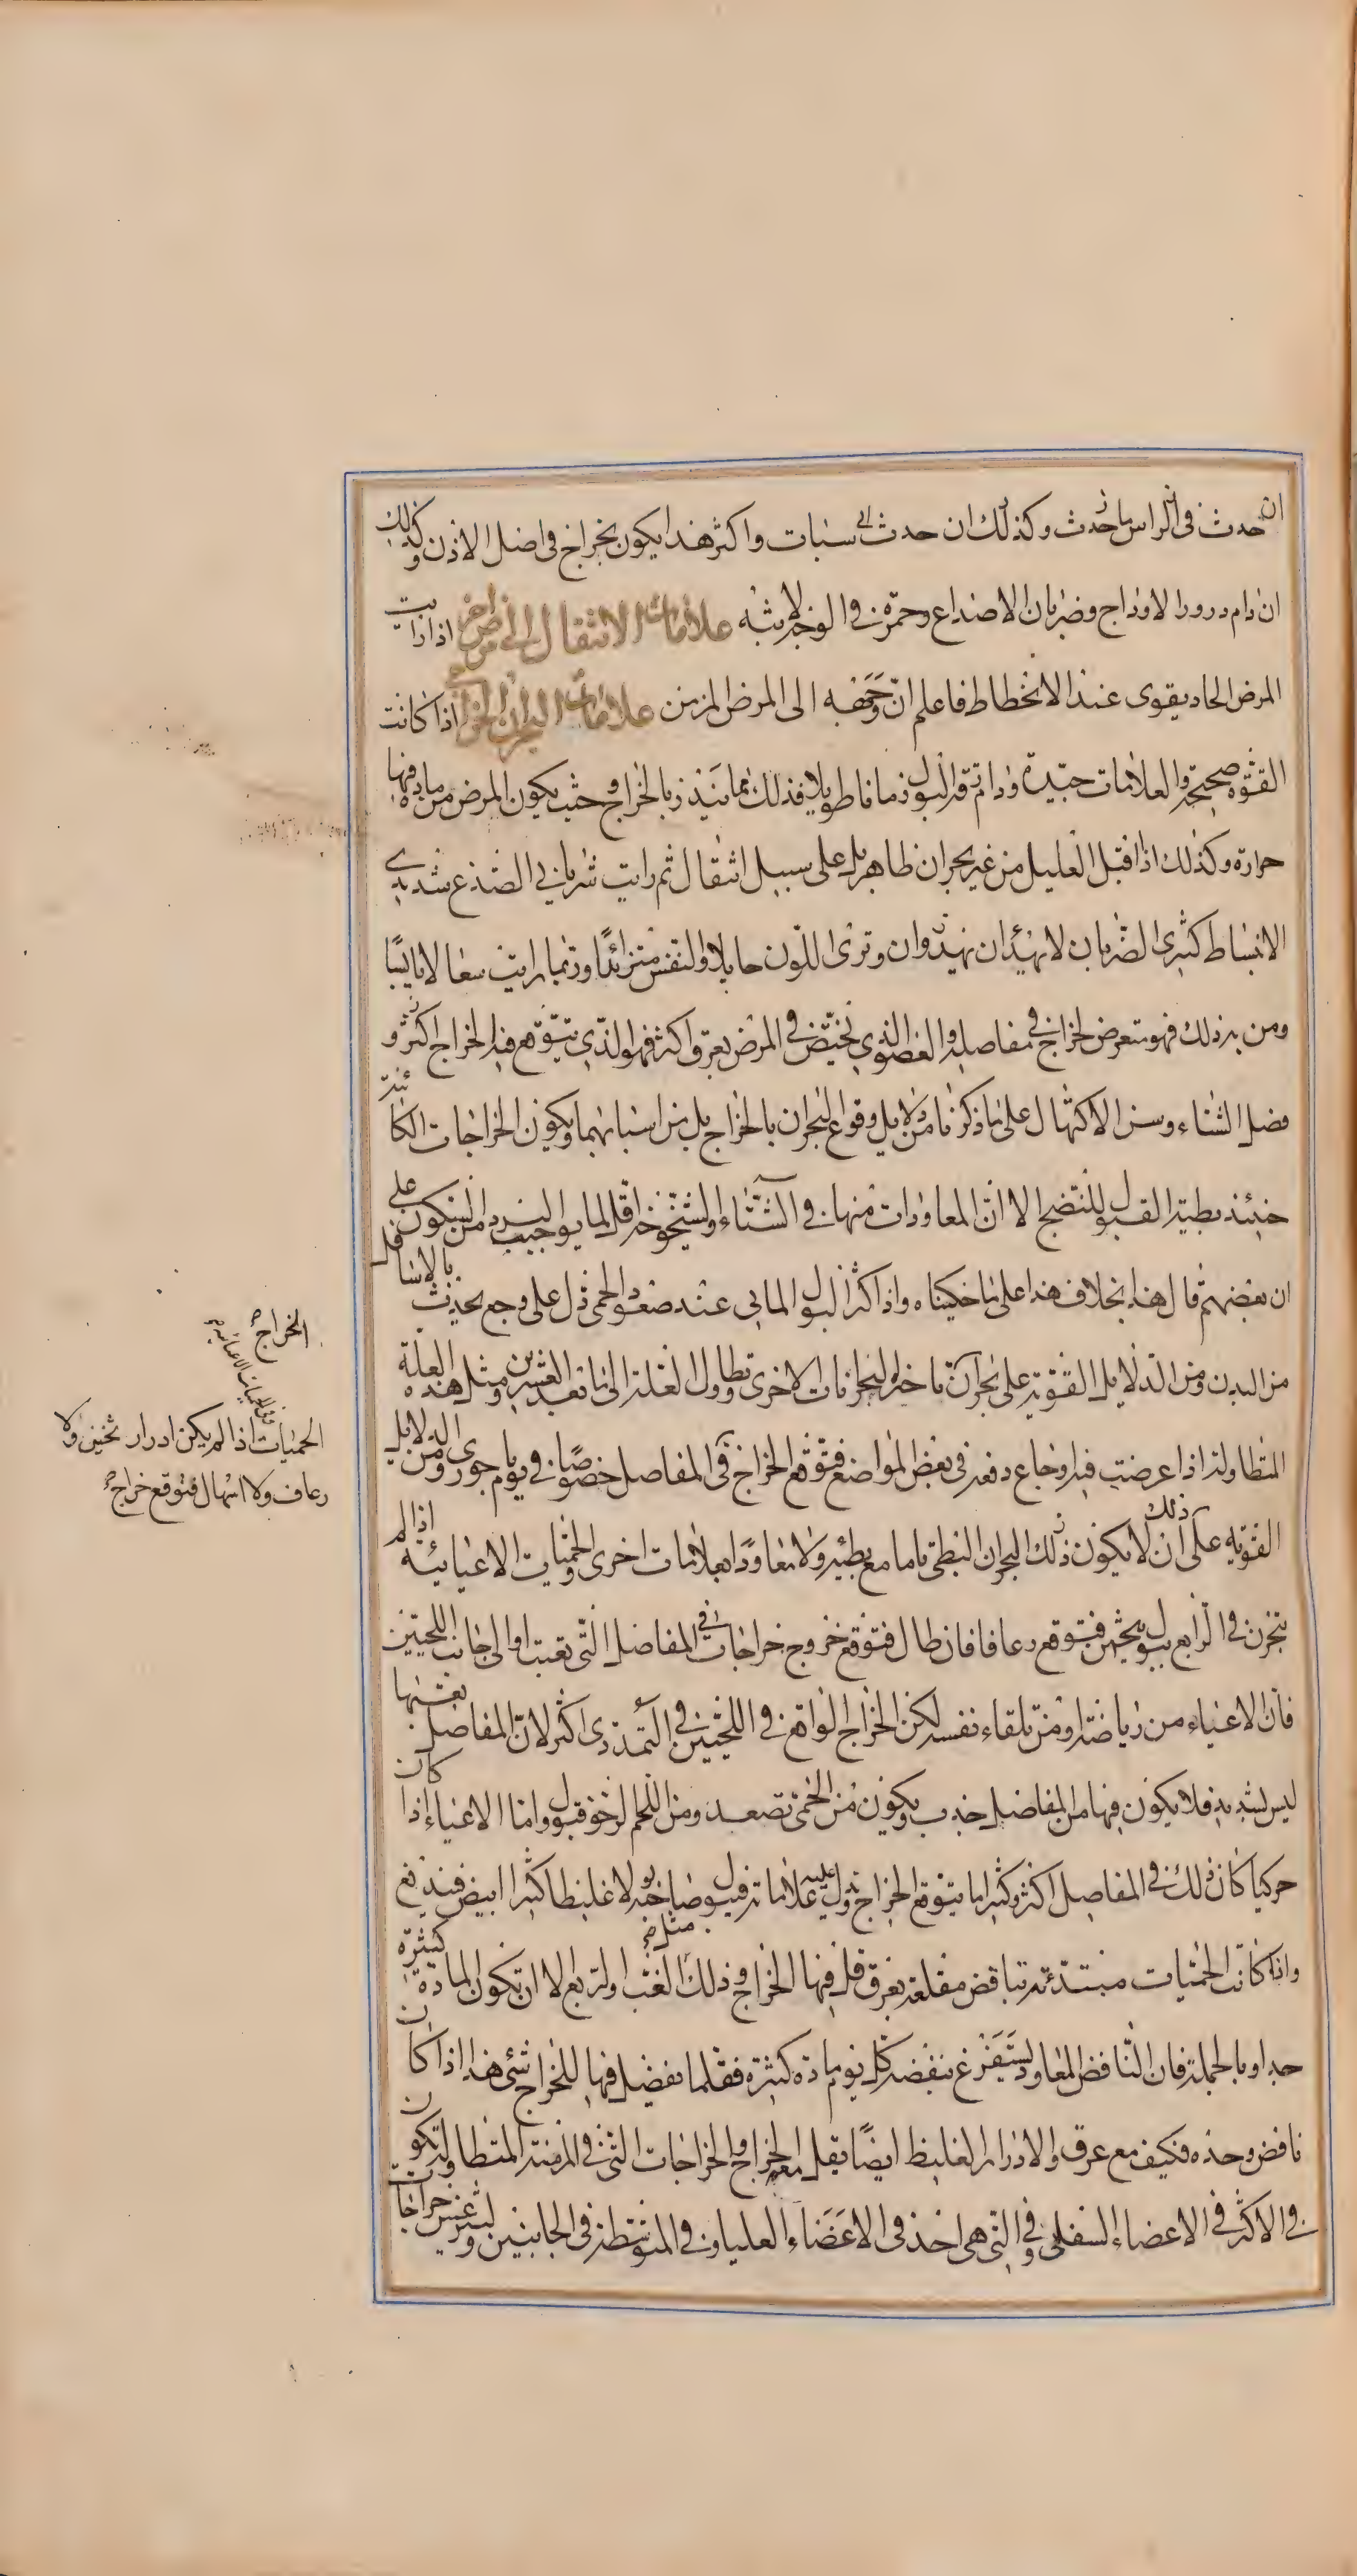 ان حدث في الراس ما حدث وكذلك ان حدث سبات واكثر هذا يكون بخراج في اصل الاذن وكذلك
ان دام درور الاوداج وضربان الاصداع وحمرة في الوجه لابثة علامات الانتقال الى مرض اخر اذا رايت
المرض الحاد يقوى عند الانحطاط فاعلم ان وجهه الى المرض المزمن علامات البحران الخراجي اذا كانت
القوة صحيحة والعلامات جيدة ودام رقة البول زمانا طويلا فذلك مما ينذر بالخراج وحيث يكون المرض من مادة فيها
حرارة وكذلك اذا اقبل العليل من غير بحران ظاهر بل على سبيل انتقال ثم رايت شرياني الصدغ شديدي
الانبساط كثيري الضربان لا يهدان يهدوان وترى اللون حايلا والنفس متزائدا وربما رايت سعالا يابسا
ومن به ذلك فهو متعرض لخراج في مفاصله والعضو الذي يختص في المرض بعرق اكثر فهو الذي يتوقع فيه الخراج اكثر و
فصل الشتاء وسن الاكتهال على ما ذكرنا من دلايل وقوع البحران بالخراج بل من اسبابهما ويكون الخراجات الكائنة
حينئذ بطيئة القبول للنضج الا ان المعاودات منها في الشتاء والشيخوخة اقل لما يوجب البرد من السكون على
ان بعضهم قال هذا بخلاف هذا على ما حكيناه واذا كثر البول المائي عند صعود الحمى دل على وجع يحدث بالاسافل
من البدن ومن الدلايل القوية على بحران تاخر البحرانات الاخرى وتطاول العلة الى ما بعد العشرين ومثل هذه العلة
المتطاولة اذا عرضت فيها اوجاع دفعة في بعض المواضع فتوقع الخراج في المفاصل خصوصا في يوم باحوري ومن الدلايل
القوية على ان لا يكون ذلك البحران البطي تاما مع بطئه ولا معاودا بعلامات اخرى الحميات الاعيائية اذا لم
تبحرن في الرابع ببول ثخين فتوقع رعافا فان طال فتوقع خروج خراجات في المفاصل التي تعبت او الى جانب اللحيين
فان الاعياء من رياضة او من تلقاء نفسه لكن الخراج الواقع في اللحيين في التمددي اكثر لان المفاصل تعبها
ليس بشديد فلا يكون فيها من المفاصل جذب ويكون من الحمى تصعد ومن اللحم الرخو قبول واما الاعياء اذا كان
حركيا كان ذلك في المفاصل اكثر وكثيرا ما يتوقع الخراج وتدل عليه علاماته فيبول صاحبه بولا غليظا كثيرا ابيض فيندفع
واذا كانت الحميات مبتدئة بنافض مقلعة بعرق قل فيها الخراج وذلك مثل الغب والربع الا ان تكون المادة كثيرة
جدا وبالجملة فان النافض المعاود يستفرغ بنفضه كل يوم مادة كثيرة فقلما يفضل فيها للخراج شئ هذا اذا كان
نافض وحده فكيف مع عرق والادرار الغليظ ايضا يقل معه الخراج والخراجات التي في المزمنة المتطاولة تكون
في الاكثر في الاعضاء السفلى وفي التي هي احد في الاعضاء العليا وفي المتوسطة في الجانبين وليثرغس خراجات
الخراج
الحميات اذا لم يكن ادرار ثخين ولا
رعاف ولا اسهال فتوقع خراج